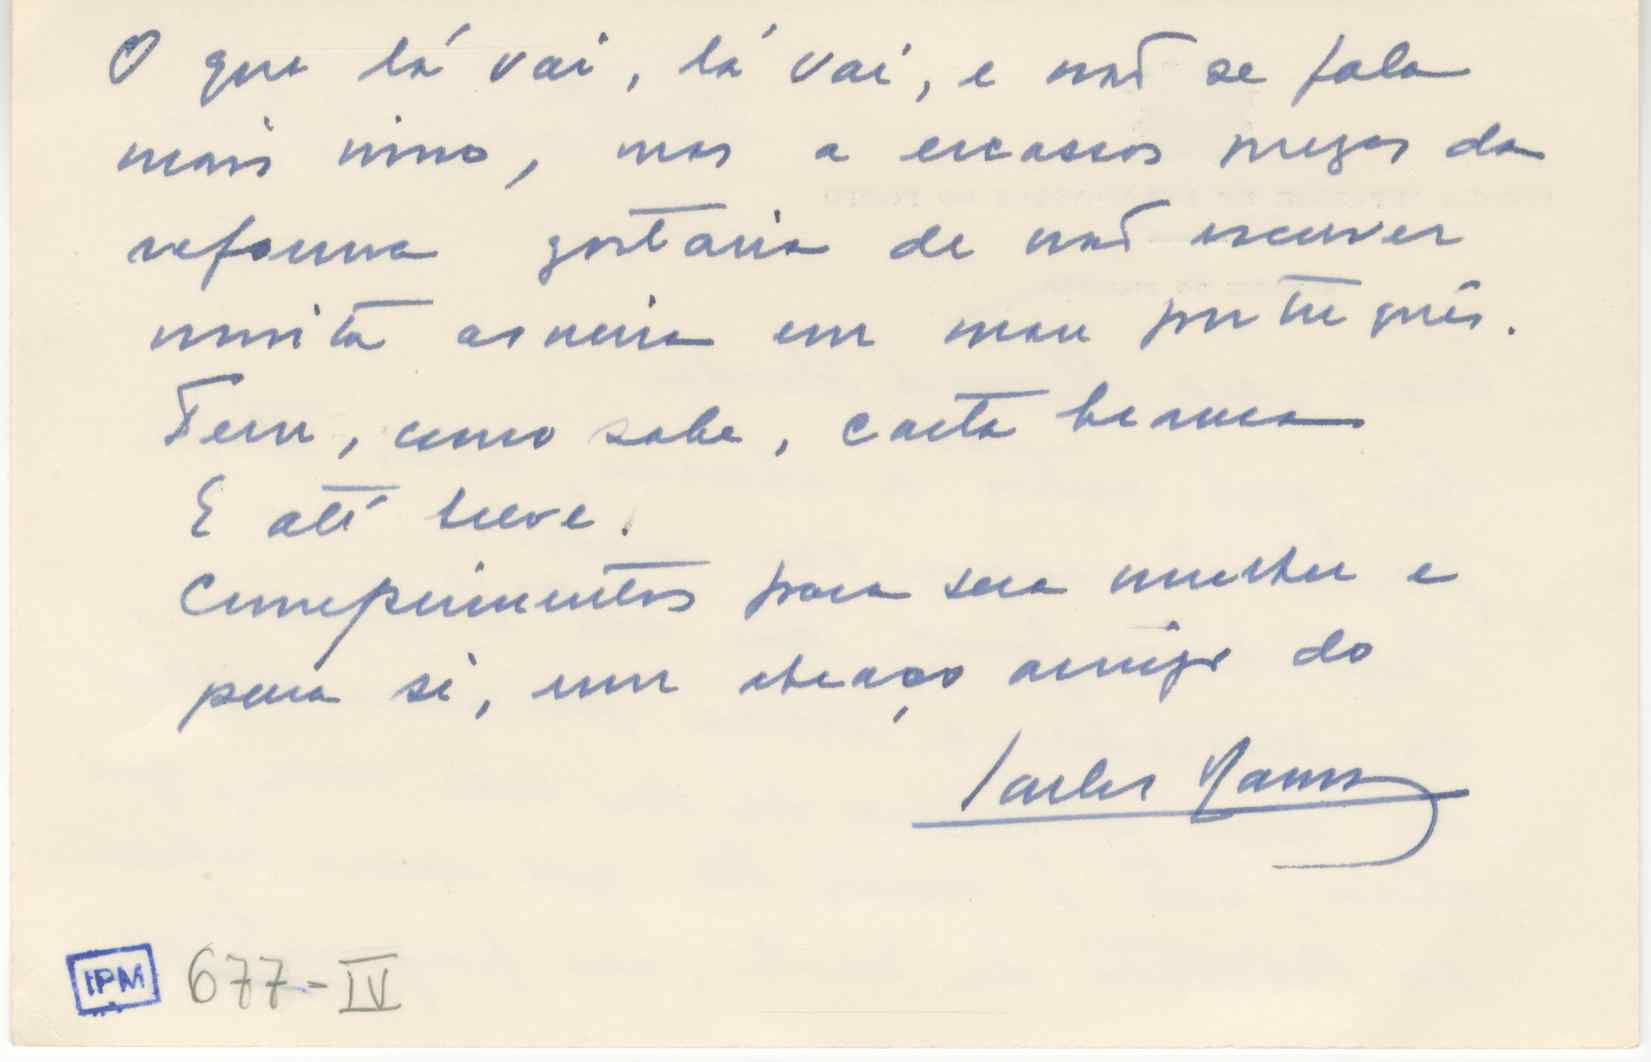 O que lá vai, lá vai, e não se fala
mais nisso, mas a escassos mezes da
reforma gostaria de não escrever
muita asneira em mau português.
Tem, como sabe, carta branca
E até breve.
Cumprimentos para sua mulher e
para si, um abraço amigo do
Carlos Ramos
IPM 677-IV